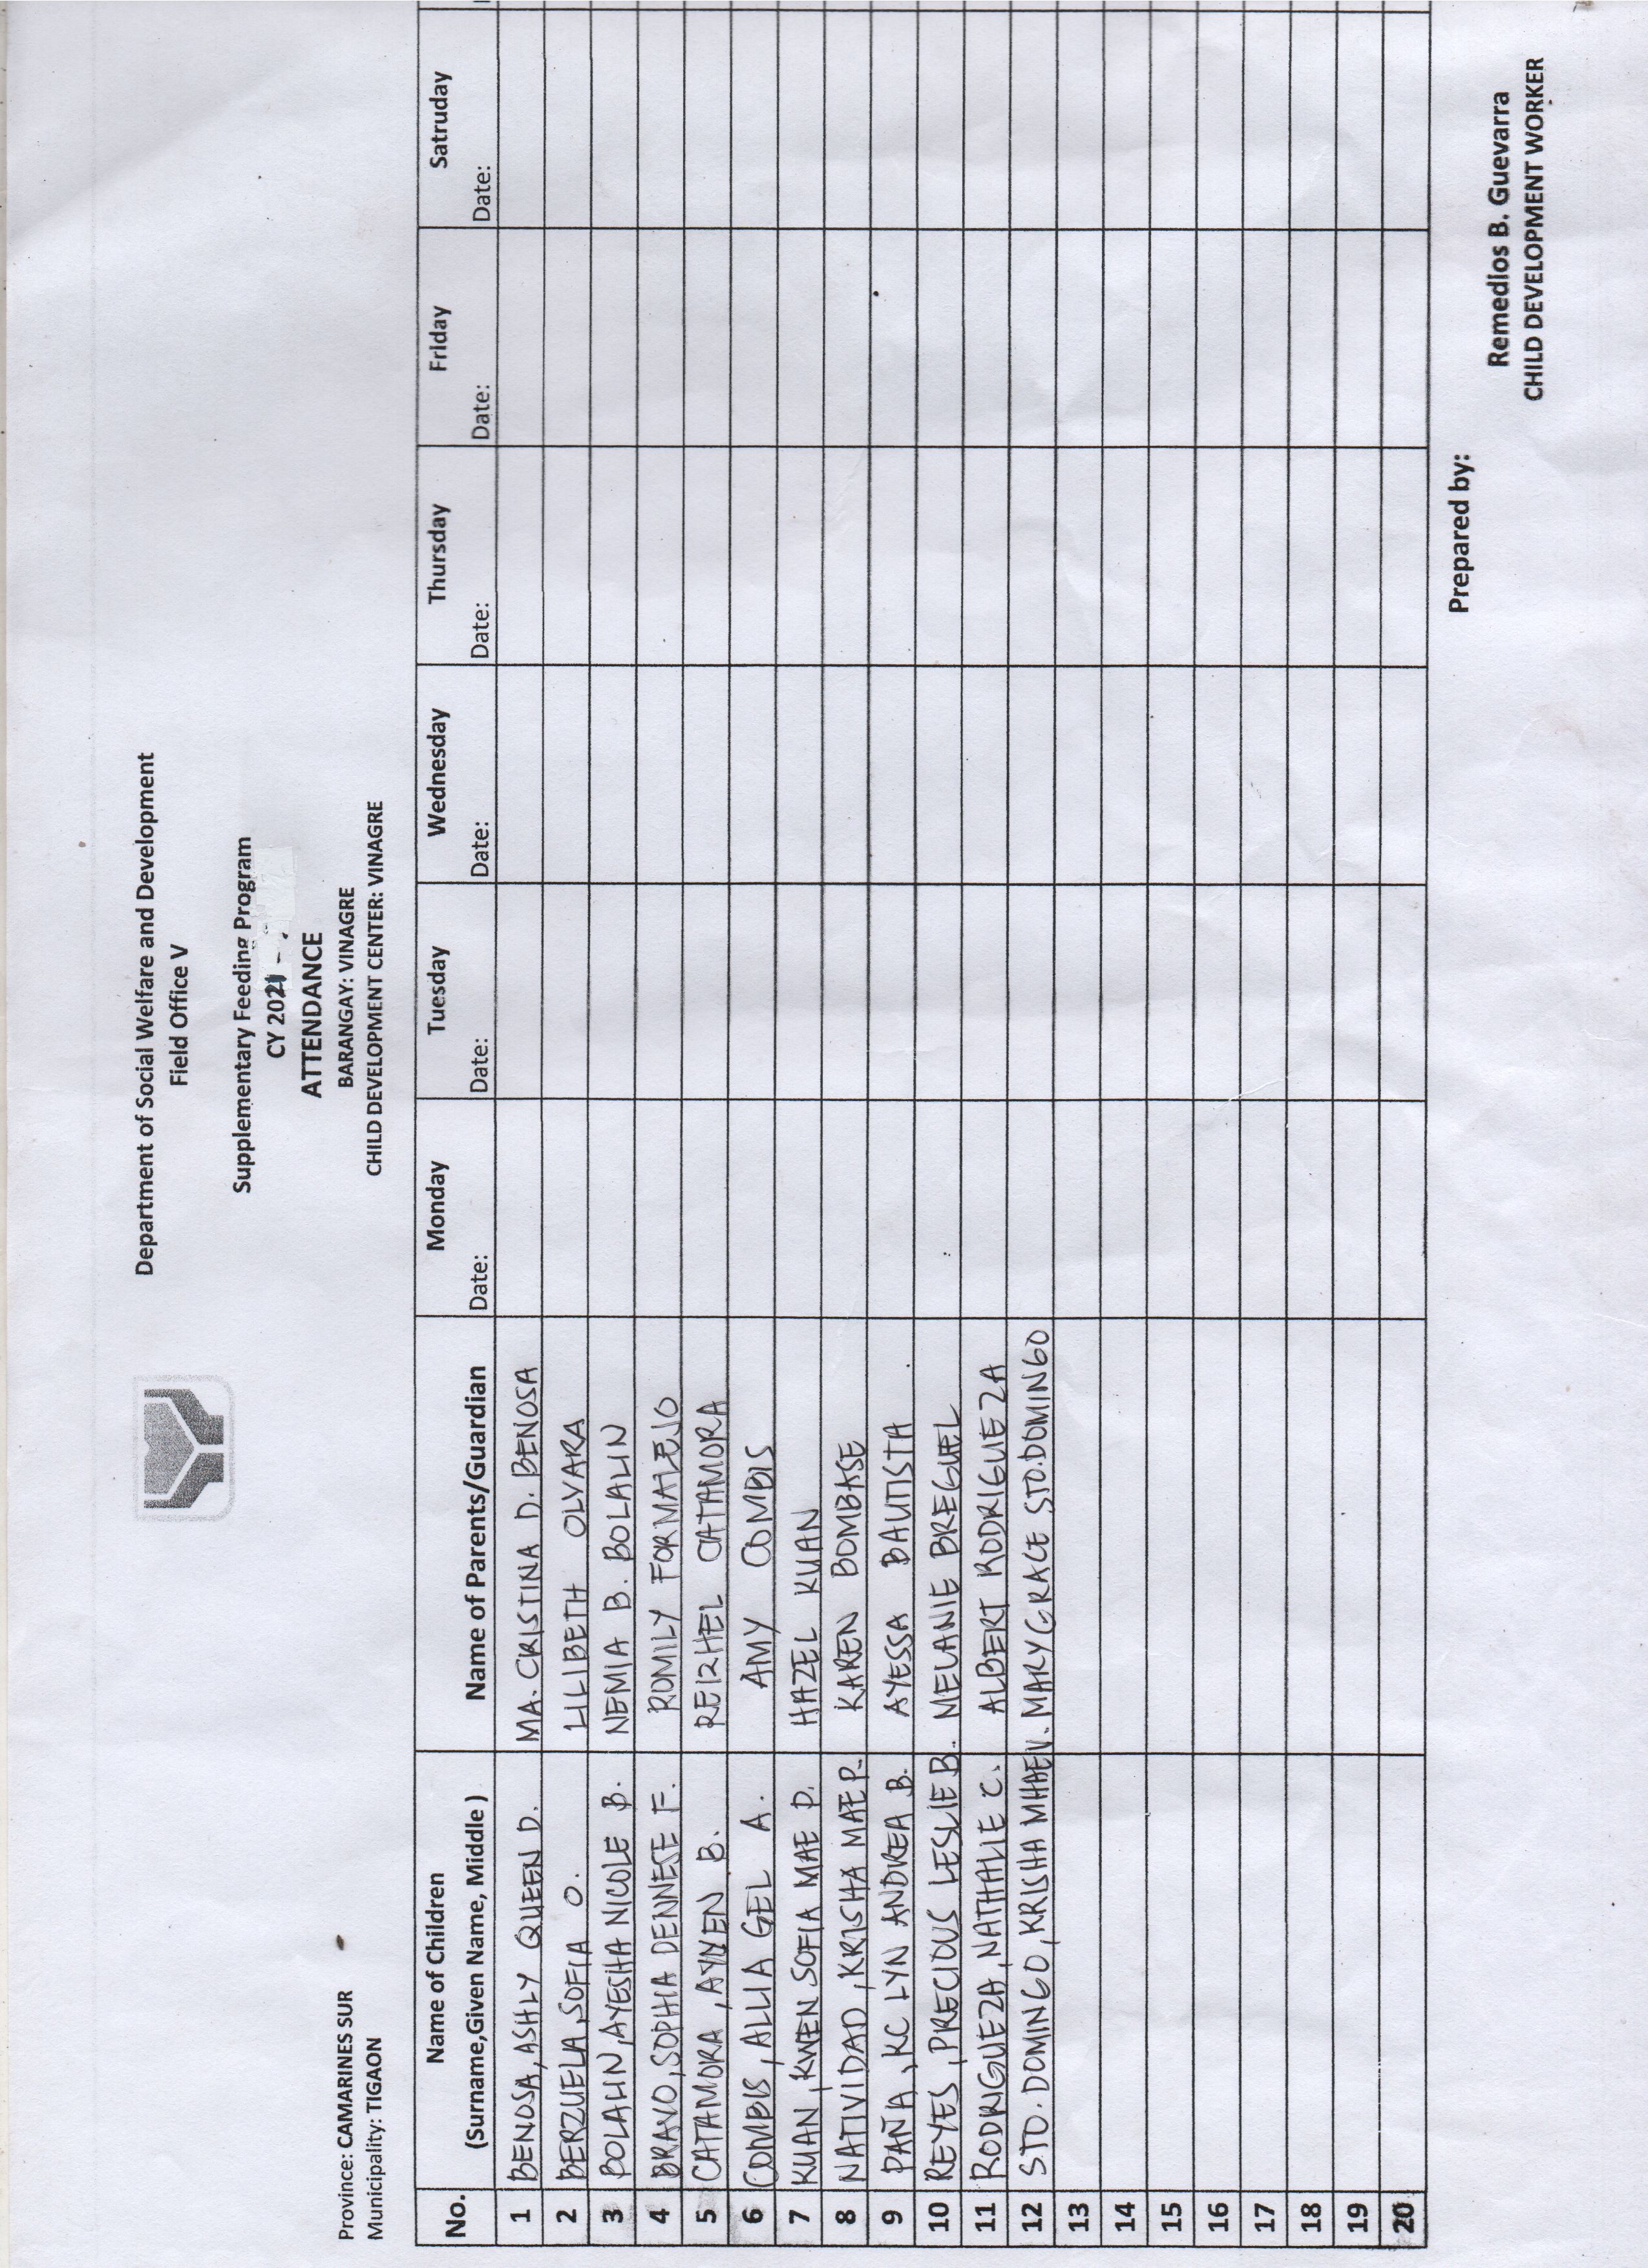 Department of Social Welfare and Development
Field Office V
Supplementary Feeding Program
CY 2021 -
ATTENDANCE
BARANGAY: VINAGRE
CHILD DEVELOPMENT CENTER: VINAGRE
Province: CAMARINES SUR
Municipality: TIGAON
No. Name of Children (Surname,Given Name, Middle ) Name of Parents/Guardian Monday Tuesday Wednesday Thursday Friday Satruday
Date: Date: Date: Date: Date: Date:
1 BENOSA, ASHLY QUEEN D. MA. CRISTINA D. BENOSA
2 BERZUELA, SOFIA O. LILIBETH OLVARA
3 BOLALIN, AYESHA NICOLE B. NEMIA B. BOLALIN
4 BRAVO, SOPHIA DENNESE F. ROMILY FORMALEJO
5 CATAMORA, AYLEN B. REIZHEL CATAMORA
6 COMBIS, ALLIA GEL A. AMY COMBIS
7 KUAN, KWEN SOFIA MAE D. HAZEL KUAN
8 NATIVIDAD, KRISHA MAE P. KAREN BOMBASE
9 PAÑA, KC LYN ANDREA B. AYESSA BAUTISTA
10 REYES, PRECIOUS LESLIE B. MELANIE BREGUEL
11 RODRIGUEZA, NATHALIE C. ALBERT RODRIGUEZA
12 STO. DOMINGO, KRISHA MHAE V. MARY GRACE STO. DOMINGO
13
14
15
16
17
18
19
20
Prepared by:
Remedios B. Guevarra
CHILD DEVELOPMENT WORKER